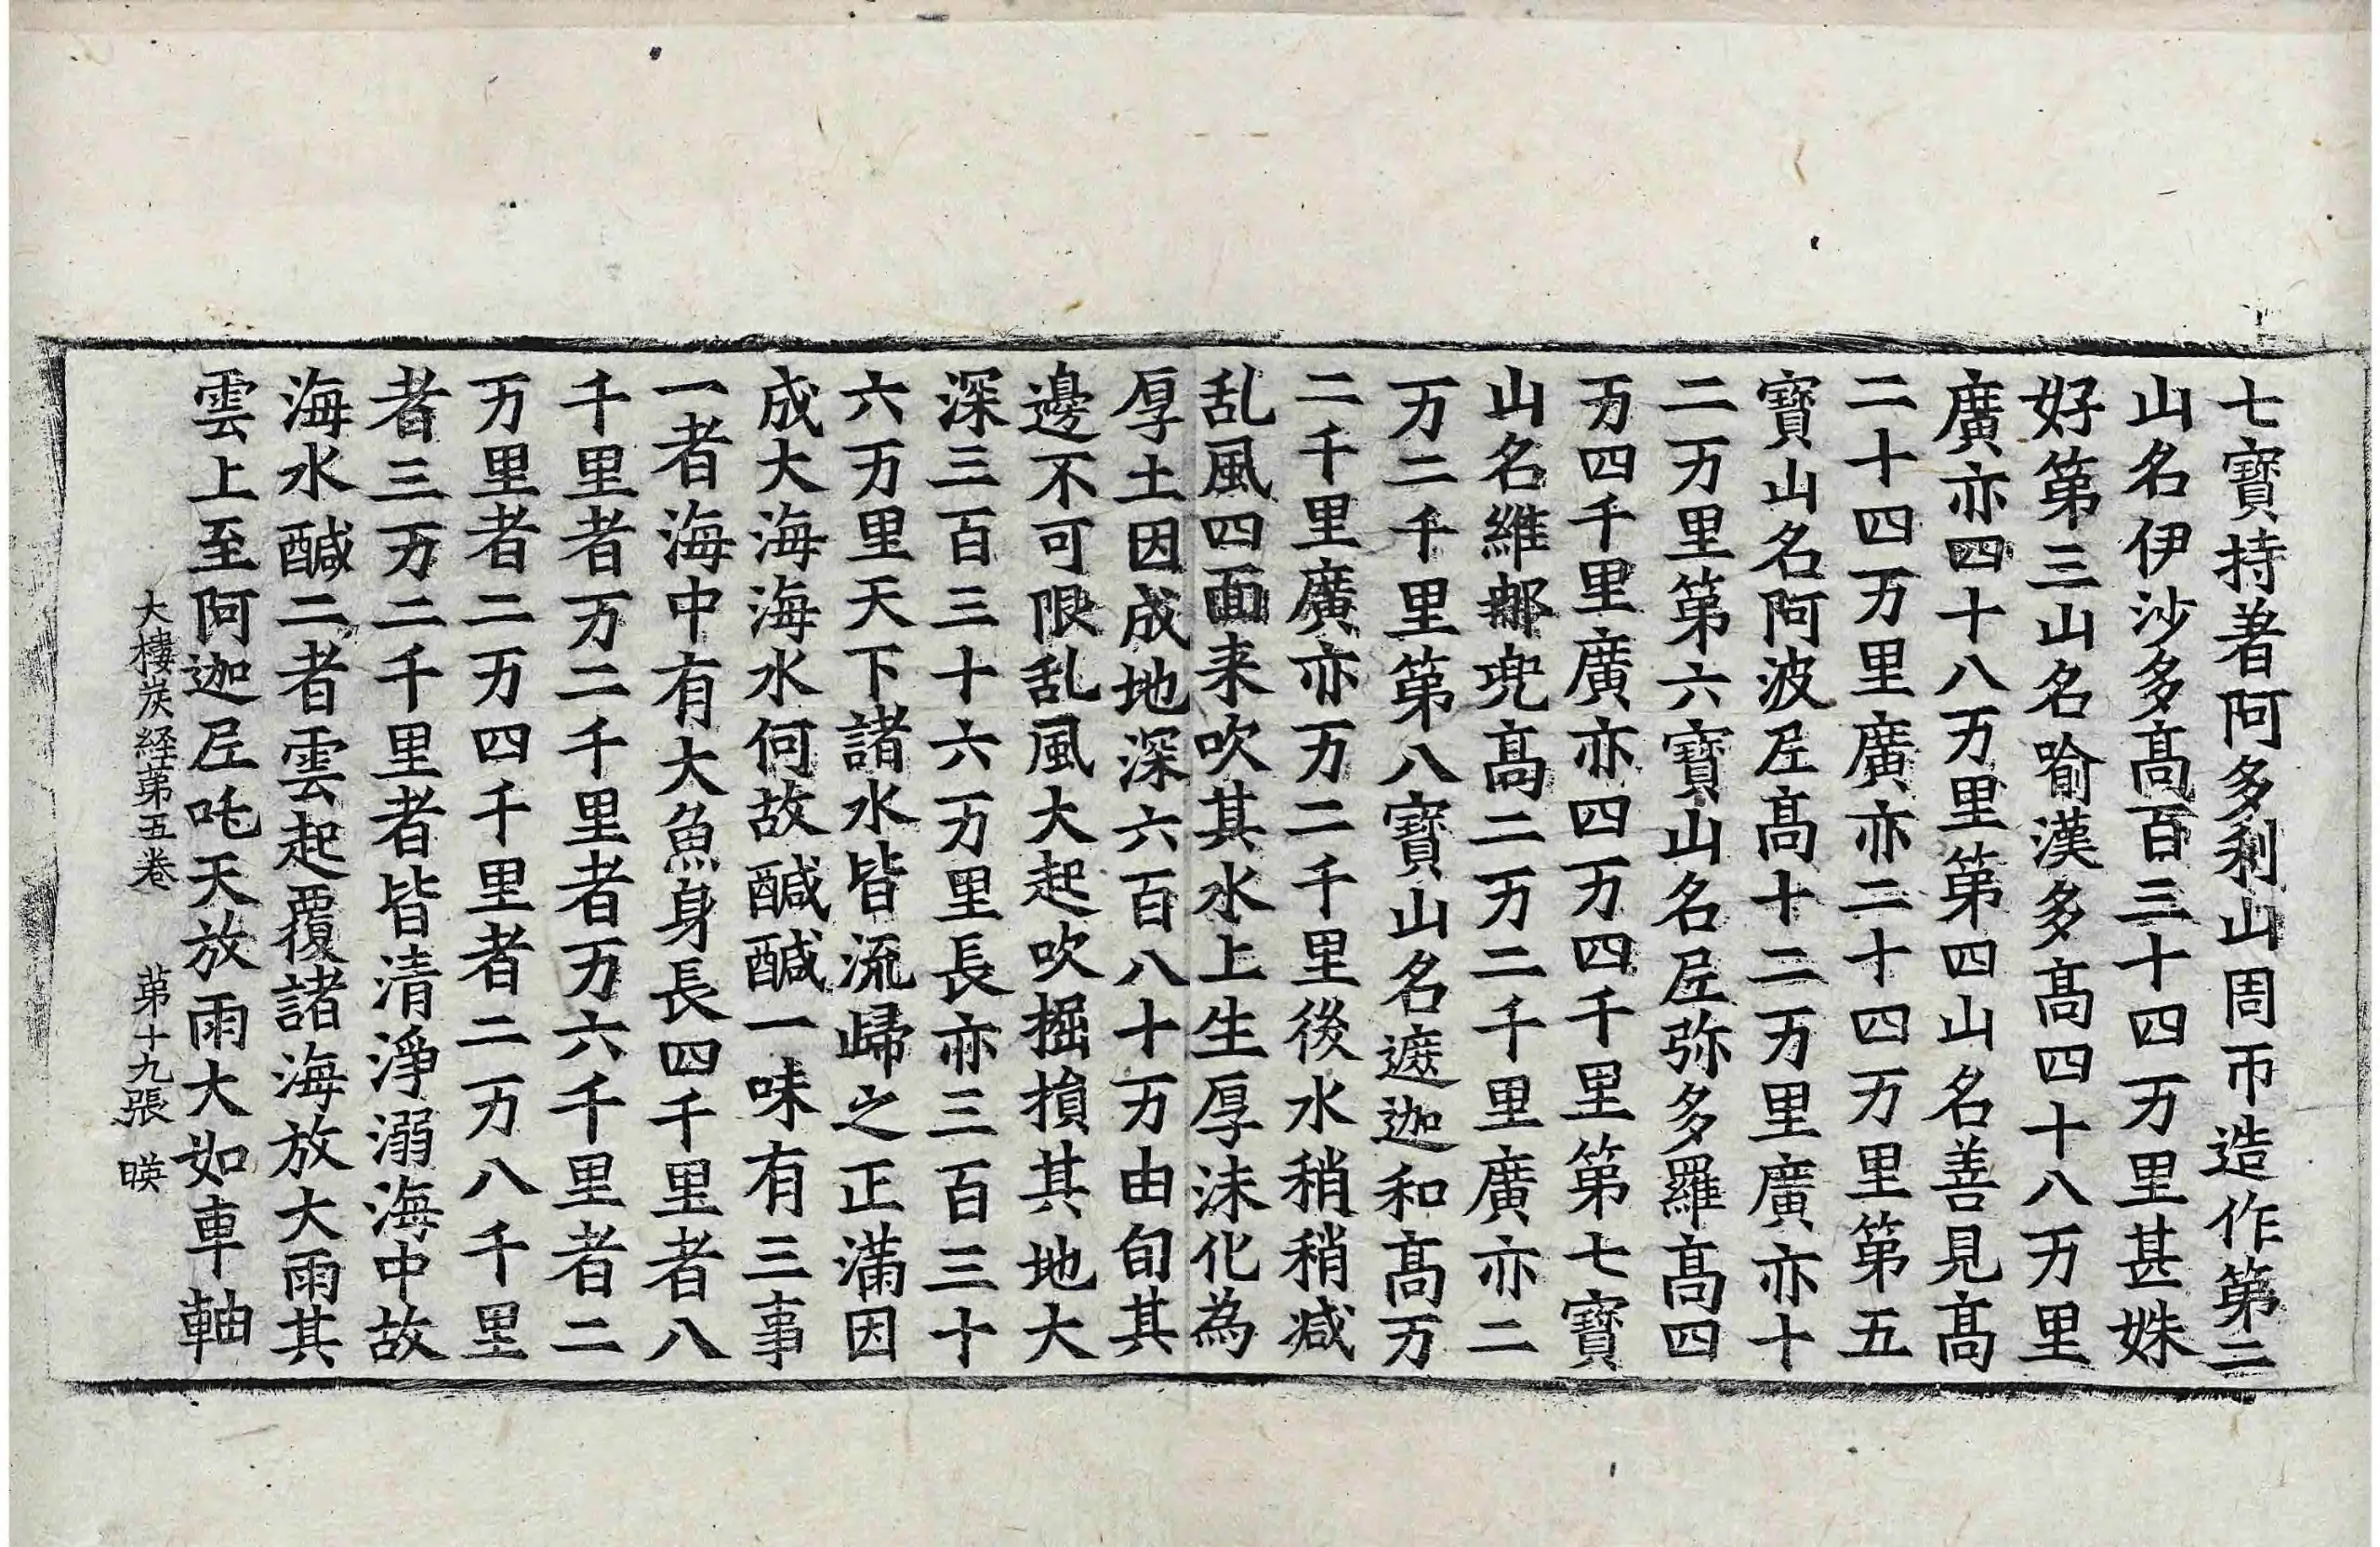 七寶持著阿多利山周帀造作第二
山名伊沙多髙百三十四万里甚姝
好第三山名喻漢多髙四十八万里
廣亦四十八万里第四山名善見髙
二十四万里廣亦二十四万里第五
寶山名阿波𡰱髙十二万里廣亦十
二万里第六寶山名𡰱弥多羅髙四
万四千里廣亦四万四千里第七寶
山名維郍兜髙二万二千里廣亦二
万二千里第八寶山名遮迦和髙万
二千里廣亦万二千里後水稍稍减
乱風四面来吹其水上生厚沫化為
厚土因成地深六百八十万由旬其
邊不可限乱風大起吹掘損其地大
深三百三十六万里長亦三百三十
六万里天下諸水皆流歸之正滿因
成大海海水何故醎醎一味有三事
一者海中有大魚身長四千里者八
千里者万二千里者万六千里者二
万里者二万四千里者二万八千里
者三万二千里者皆清淨溺海中故
海水醎二者雲起覆諸海放大雨其
雲上至阿迦𡰱吒天放雨大如車軸
大樓炭経苐五卷 苐十九張 暎